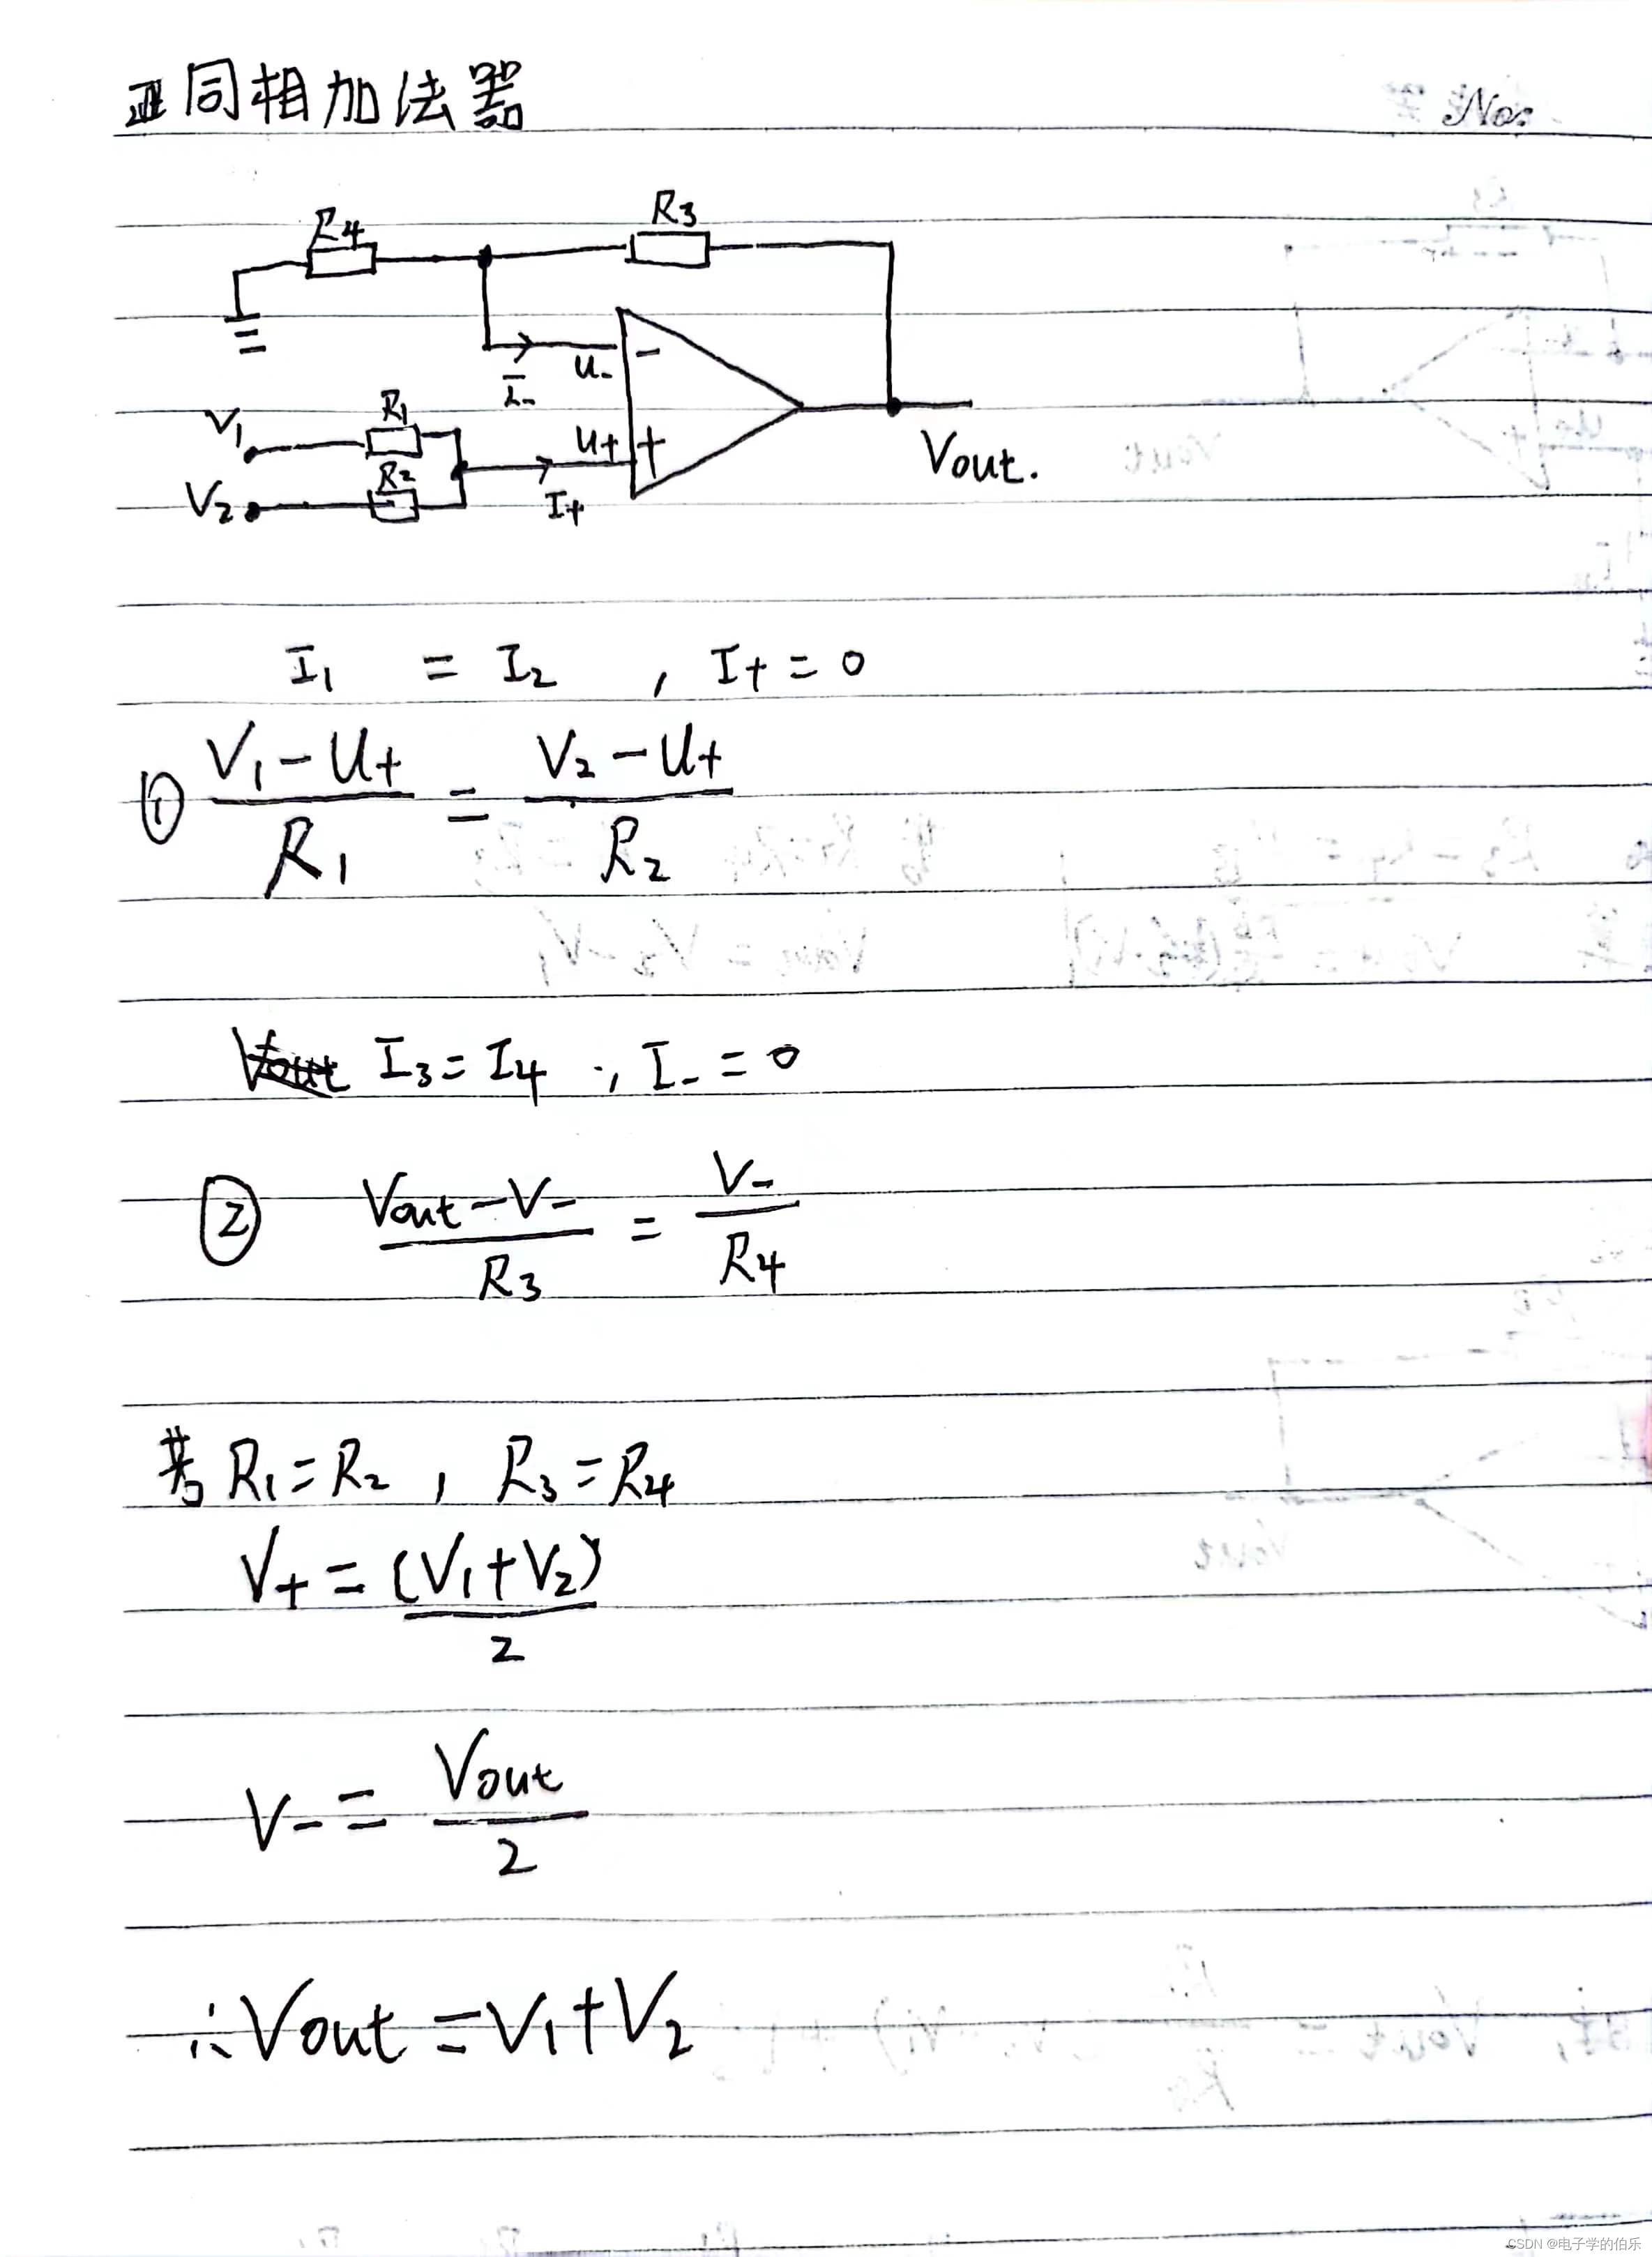 同相加法器
No:
R4
R3
I-
U-
-
V1
R1
U+
+
R2
V2
I+
Vout.
I1 = I2 , I+ = 0
① (V1 - U+)/R1 = (V2 - U+)/R2
I3 = I4 ., I- = 0
② (Vout - V-)/R3 = V-/R4
若 R1 = R2 , R3 = R4
V+ = (V1 + V2)/2
V- = Vout/2
∴ Vout = V1 + V2
CSDN @电子学的伯乐